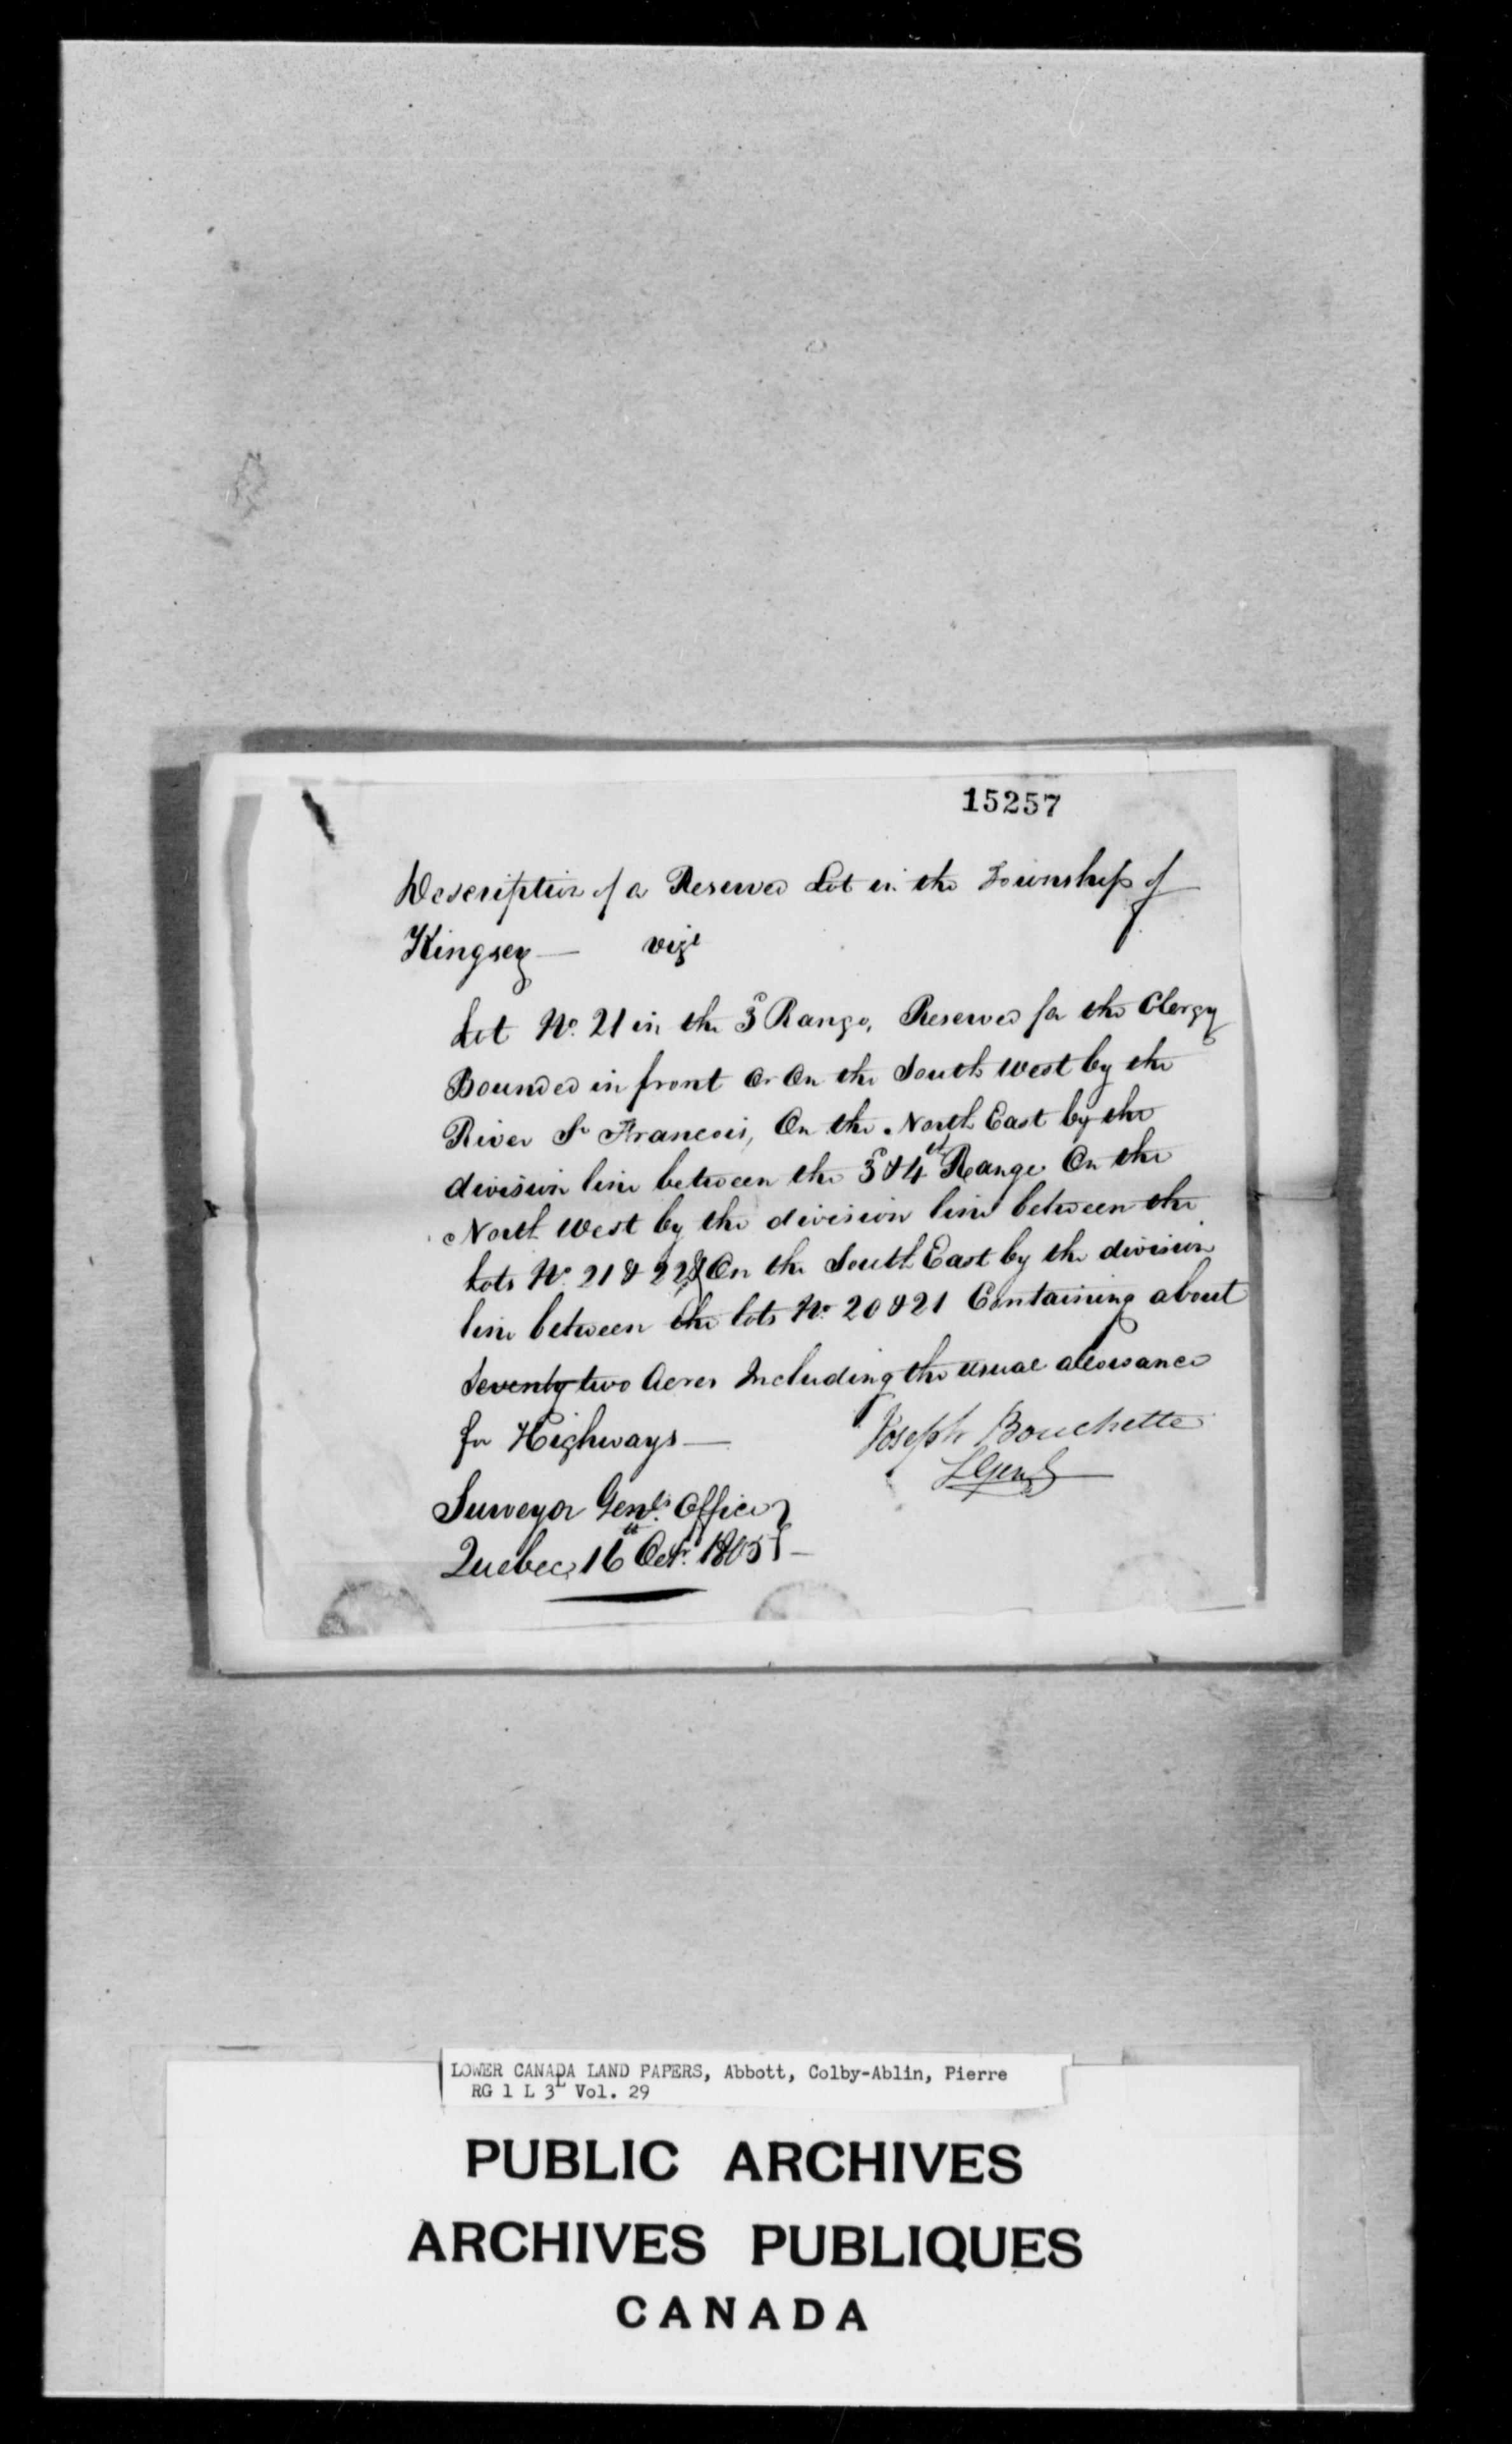 15257
Description of a Reserved Lot in the Township of
Kingsey — vizt
Lot No. 21 in the 3d Range, Reserved for the Clergy
Bounded in front or On the South West by the
River St Francois, On the North East by the
division line between the 3d & 4th Range On the
North West by the division line between the
Lots No. 21 & 22 & On the South East by the division
line between the lots No. 20 & 21 Containing about
Seventy two Acres Including the usual allowance
for Highways —
Joseph Bouchette
S Genl
Surveyor Genl's Office
Quebec, 16th Octr. 1805 —
LOWER CANADA LAND PAPERS, Abbott, Colby-Ablin, Pierre
RG 1 L 3L Vol. 29
PUBLIC ARCHIVES
ARCHIVES PUBLIQUES
CANADA